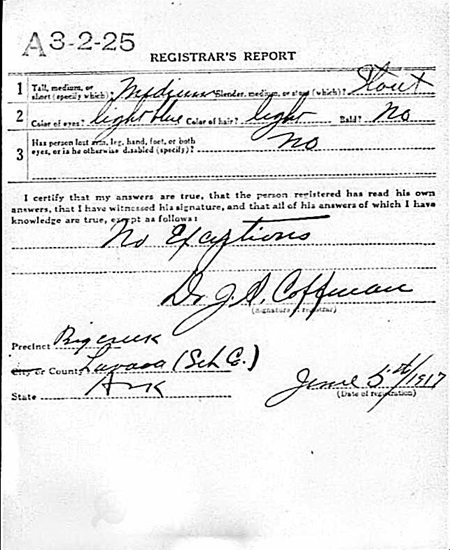 A3-2-25
REGISTRAR'S REPORT
1 Tall, medium, or short (specify which)? Medium Slender, medium, or stout (which)? Stout
2 Color of eyes? light blue Color of hair? light Bald? No
3 Has person lost arm, leg, hand, foot, or both eyes, or is he otherwise disabled (specify)? No
I certify that my answers are true, that the person registered has read his own
answers, that I have witnessed his signature, and that all of his answers of which I have
knowledge are true, except as follows:
No Exceptions
Dr J. A. Coffman
(Signature of registrar)
Precinct Bigcreek
City or County Lavaca (Seb C.)
State Ark
June 5th/1917
(Date of registration)